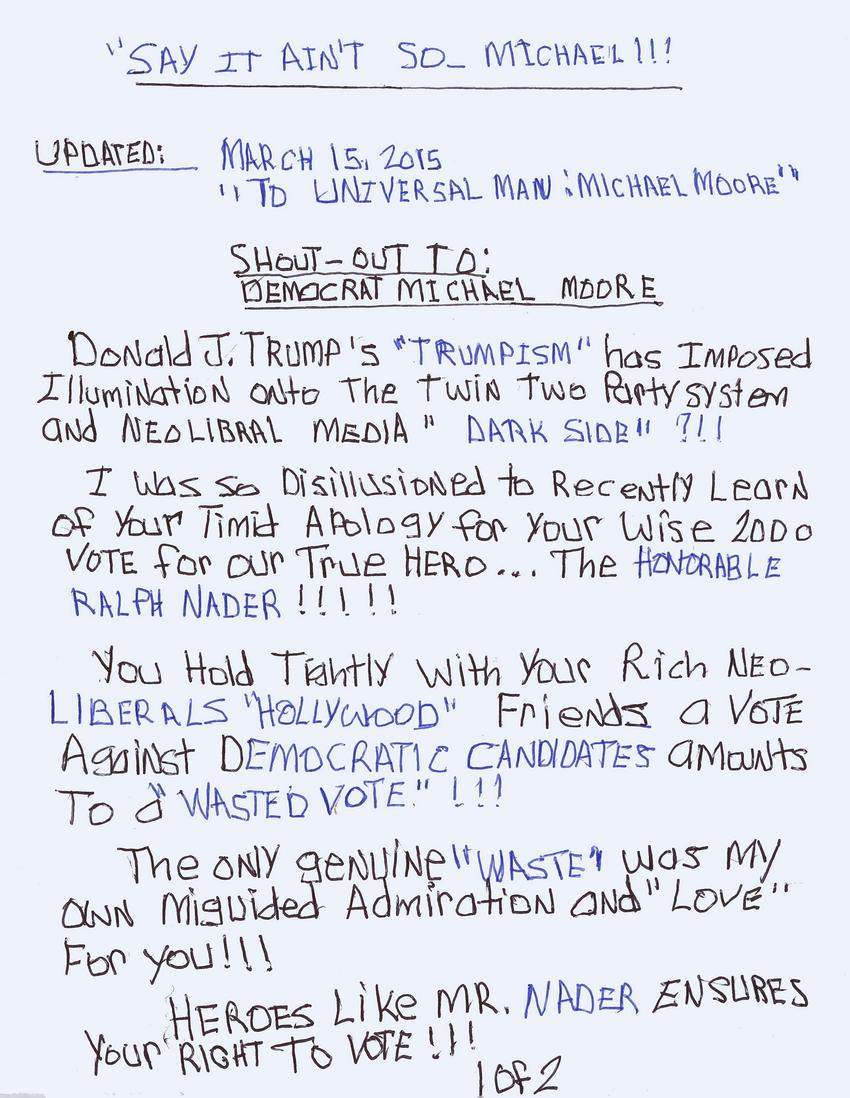 "SAY IT AIN'T SO_ MICHAEL!!!
UPDATED: MARCH 15, 2015
"TO UNIVERSAL MAN: MICHAEL MOORE"
SHOUT-OUT TO:
DEMOCRAT MICHAEL MOORE
Donald J. TRUMP's "TRUMPISM" has IMPOSED
Illumination onto The TWIN Two Party system
and NEOLIBRAL MEDIA" DARK SIDE" ?!!
I was so Disillusioned to Recently Learn
of Your Timid Apology for Your Wise 2000
VOTE for our True HERO... The HONORABLE
RALPH NADER !!!!!
You Hold Tightly with Your Rich NEO-
LIBERALS "HOLLYWOOD" Friends a VOTE
Against DEMOCRATIC CANDIDATES amounts
To a "WASTED VOTE." !!!
The ONLY genuine "WASTE" was MY
OWN Misguided Admiration and "LOVE"
For you!!!
HEROES Like MR. NADER ENSURES
Your RIGHT TO VOTE!!!
1 of 2